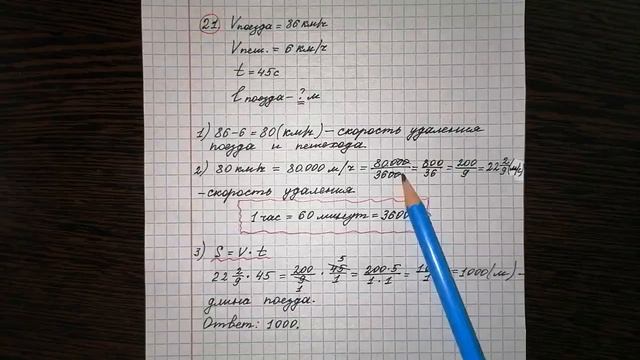 21 Vпоезда = 86 км/ч
Vпеш. = 6 км/ч
t = 45с
l поезда - ? м
1) 86-6=80 (км/ч) - скорость удаления
поезда и пешехода.
2) 80 км/ч = 80.000 м/ч = 80.000/3600 = 800/36 = 200/9 = 22 2/9 (м/с)
- скорость удаления
1 час = 60 минут = 3600
3) S = V · t
22 2/9 · 45 = 200/9 · 45/1 = 200·5/1·1 = = 1000 (м) -
длина поезда.
Ответ: 1000.